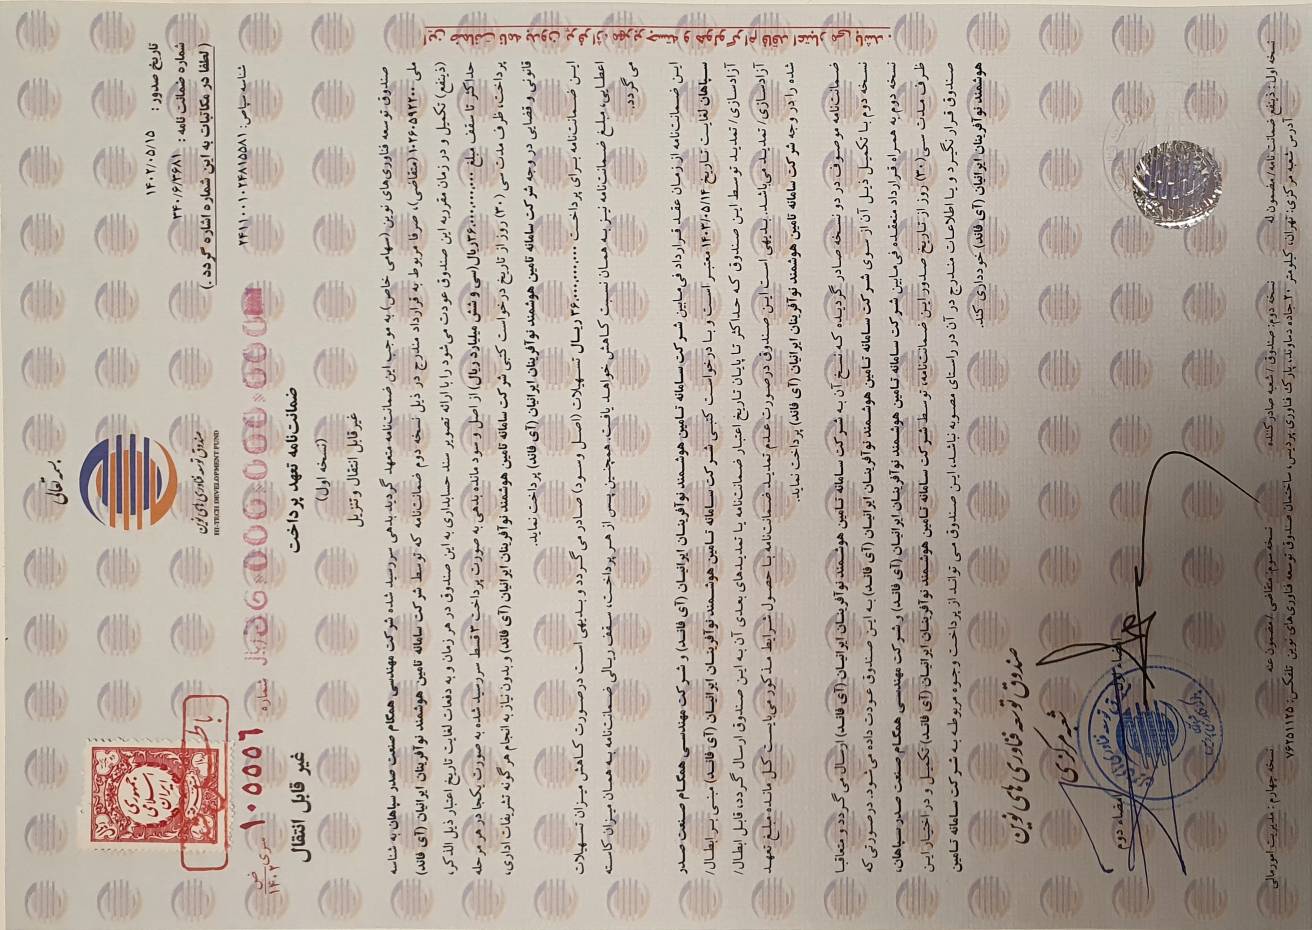 بسمه تعالی
صندوق توسعه فناوری های نوین
HI-TECH DEVELOPMENT FUND
تاریخ صدور: ۱۴۰۲/۰۵/۱۵
شماره ضمانت نامه:
(لطفا در مکاتبات به این شماره اشاره گردد.)
جمهوری اسلامی ایران
باطل شد
سری ض ۱۴۰۲ ۱۰۵۵۵۶ شماره
ریال
غیر قابل انتقال
ضمانت‌نامه تعهد پرداخت
(نسخه اول)
غیر قابل انتقال و تنزیل
صندوق توسعه فناوری‌های نوین (سهامی خاص) به موجب این ضمانت‌نامه متعهد گردید بدهی سررسید شده شرکت مهندسی همگام صنعت صدر سپاهان به شناسه
ملی (متقاضی)، صرفا مربوط به قرارداد مندرج در ذیل نسخه دوم ضمانت‌نامه که توسط شرکت سامانه تامین هوشمند نوآفرینان ایرانیان (آی فاند)
(ذینفع) تکمیل و در زمان مقرر به این صندوق عودت می‌شود را با ارائه تصویر سند حسابداری به این صندوق در هر زمان و به دفعات لغایت تاریخ اعتبار ذیل الذکر،
حداکثر تا سقف مبلغ ۳۶.۰۰۰.۰۰۰.۰۰۰ ریال (سی و شش میلیارد ریال) از اصل و سود مانده بدهی به صورت پرداخت ۳ قسط سررسید شده به صورت یکجا در هر مرحله
پرداخت، ظرف مدت سی (۳۰) روز از تاریخ درخواست کتبی شرکت سامانه تامین هوشمند نوآفرینان ایرانیان (آی فاند) و بدون نیاز به انجام هر گونه تشریفات اداری،
قانونی و قضایی در وجه شرکت سامانه تامین هوشمند نوآفرینان ایرانیان (آی فاند) پرداخت نماید.
این ضمانت‌نامه برای پرداخت ۳۶.۰۰۰.۰۰۰.۰۰۰ ریال تسهیلات (اصل و سود) صادر می گردد و بدیهی است در صورت کاهش میزان تسهیلات
اعطایی، مبلغ ضمانت‌نامه نیز به همان نسبت کاهش خواهد یافت، همچنین پس از هر پرداخت، سقف ریالی ضمانت‌نامه به همان میزان کاسته
می گردد.
این ضمانت‌نامه از زمان عقد قرارداد فی‌مابین شرکت سامانه تامین هوشمند نوآفرینان ایرانیان (آی فاند) و شرکت مهندسی همگام صنعت صدر
سپاهان لغایت تاریخ ۱۴۰۳/۰۵/۱۴ معتبر است و با درخواست کتبی شرکت سامانه تامین هوشمند نوآفرینان ایرانیان (آی فاند) مبنی بر ابطال/
آزادسازی/ تمدید توسط این صندوق که حداکثر تا پایان تاریخ اعتبار ضمانت‌نامه یا تمدیدهای بعدی آن به این صندوق ارسال گردد، قابل ابطال/
آزادسازی/ تمدید می‌باشد. بدیهی است این صندوق در صورت عدم تمدید ضمانت‌نامه با حصول شرایط مذکور می‌بایست کل مانده مبلغ تعهد
شده را در وجه شرکت سامانه تامین هوشمند نوآفرینان ایرانیان (آی فاند) پرداخت نماید.
ضمانت‌نامه موصوف در دو نسخه صادر گردیده که نسخ آن به شرکت سامانه تامین هوشمند نوآفرینان ایرانیان (آی فاند) ارسال می گردد و متعاقبا
نسخه دوم با تکمیل ذیل آن از سوی شرکت سامانه تامین هوشمند نوآفرینان ایرانیان (آی فاند) به این صندوق عودت داده می‌شود. در صورتی که
نسخه دوم به همراه قرارداد منعقده فی‌مابین شرکت سامانه تامین هوشمند نوآفرینان ایرانیان (آی فاند) و شرکت مهندسی همگام صنعت صدر سپاهان،
ظرف مدت سی (۳۰) روز از تاریخ صدور این ضمانت‌نامه، توسط شرکت سامانه تامین هوشمند نوآفرینان ایرانیان (آی فاند) تکمیل و در اختیار این
صندوق قرار نگیرد و یا اطلاعات مندرج در آن در راستای مصوبه نباشد، این صندوق می تواند از پرداخت وجوه مربوطه به شرکت سامانه تامین
هوشمند نوآفرینان ایرانیان (آی فاند) خودداری کند.
صندوق توسعه فناوری های نوین
شعبه مرکزی
امضاء دوم
نسخه اول: ذینفع ضمانت نامه/ مضمون له نسخه دوم: صندوق/ شعبه صادر کننده نسخه سوم: متقاضی/ مضمون عنه نسخه چهارم: مدیریت امور مالی
آدرس شعبه مرکزی: تهران، کیلومتر ۲۰ جاده دماوند، پارک فناوری پردیس، ساختمان صندوق توسعه فناوری‌های نوین تلفکس: ۷۶۲۵۱۱۲۵